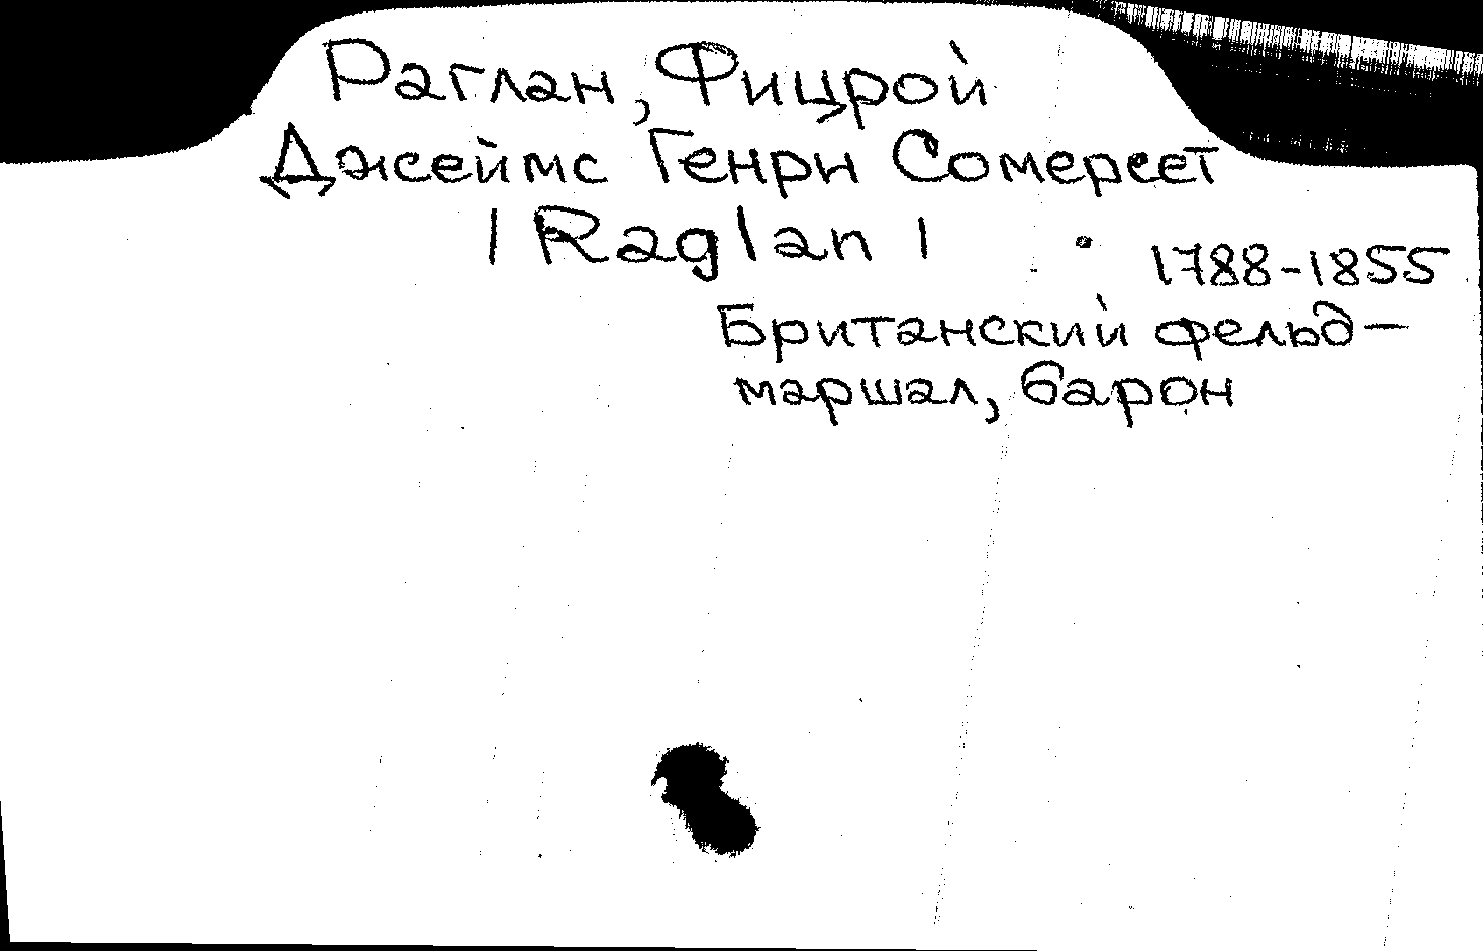 Раглан, Фицрой
Джеймс Генри Сомерсет
/Raglan/
1788-1855
Британский фельд-
маршал, барон